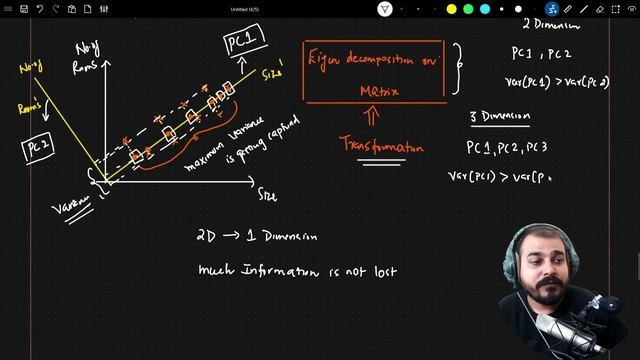 Untitled (4/5)
2 Dimension
PC1, PC2
Var(PC1) > Var(PC2)
3 Dimension
PC1, PC2, PC3
Var(PC1) > Var(P
No. of
Rooms
No. of
Rooms'
PC2
PC1
Size'
maximum variance
is getting captured
Size
Eigen decomposition on
Matrix
Transformation
2D → 1 Dimension
much Information is not lost